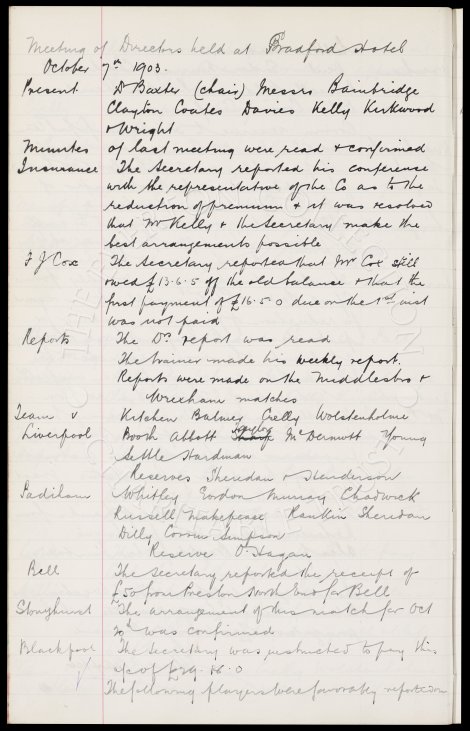 Meeting of Directors held at Bradford Hotel
October 7th 1903.
Present Dr Baxter (chair) Messrs Bainbridge
Clayton Coates Davies Kelly Kirkwood
& Wright
Minutes of last meeting were read & confirmed
Insurance The Secretary reported his conference
with the representative of the Co as to the
reduction of premium & it was resolved
that Mr Kelly & the Secretary make the
best arrangements possible
F J Cox The Secretary reported that Mr Cox still
owed £13.6.5 off the old balance & that the
first payment of £16.5.0 due on the 1st inst
was not paid
Reports The Drs report was read
The trainer made his weekly report.
Reports were made on the Middlesbro &
Wrexham matches
Team v Kitchen Balmer Crelly Wolstenholme
Liverpool Booth Abbott Sharp McDermott Young
Settle Hardman
Reserves Sheridan & Henderson
Padiham Whitley Murray Chadwick
Russell Makepeace Rankin Sheridan
Dilly Corrin Simpson
Reserve O'Hagan
Bell The Secretary reported the receipt of
£50 from Preston North End for Bell
Stonyhurst The arrangement of this match for Oct
20th was confirmed
Blackpool The Secretary was instructed to pay this
a/c of £29.16.0
The following players were favorably reported on